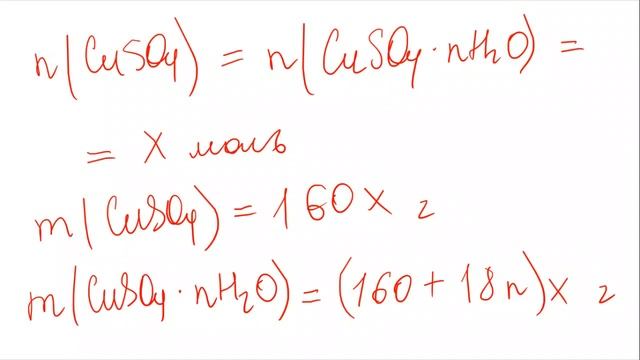 n(CuSO₄) = n(CuSO₄·nH₂O) =
= x моль
m(CuSO₄) = 160x г
m(CuSO₄·nH₂O) = (160 + 18n)x г